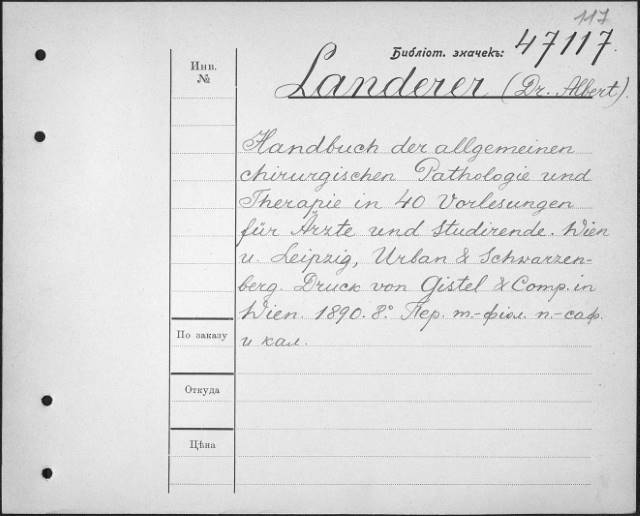 117
Библіот. значекъ: 47117.
Инв.
№
Landerer (Dr. Albert).
Handbuch der allgemeinen
chirurgischen Pathologie und
Therapie in 40 Vorlesungen
für Ärzte und Studirende. Wien
u. Leipzig, Urban & Schwarzen-
berg. Druck von Gistel & Comp. in
Wien. 1890. 8º. Пер. т.-фіол. п.-саф.
и кал.
По заказу
Откуда
Цѣна